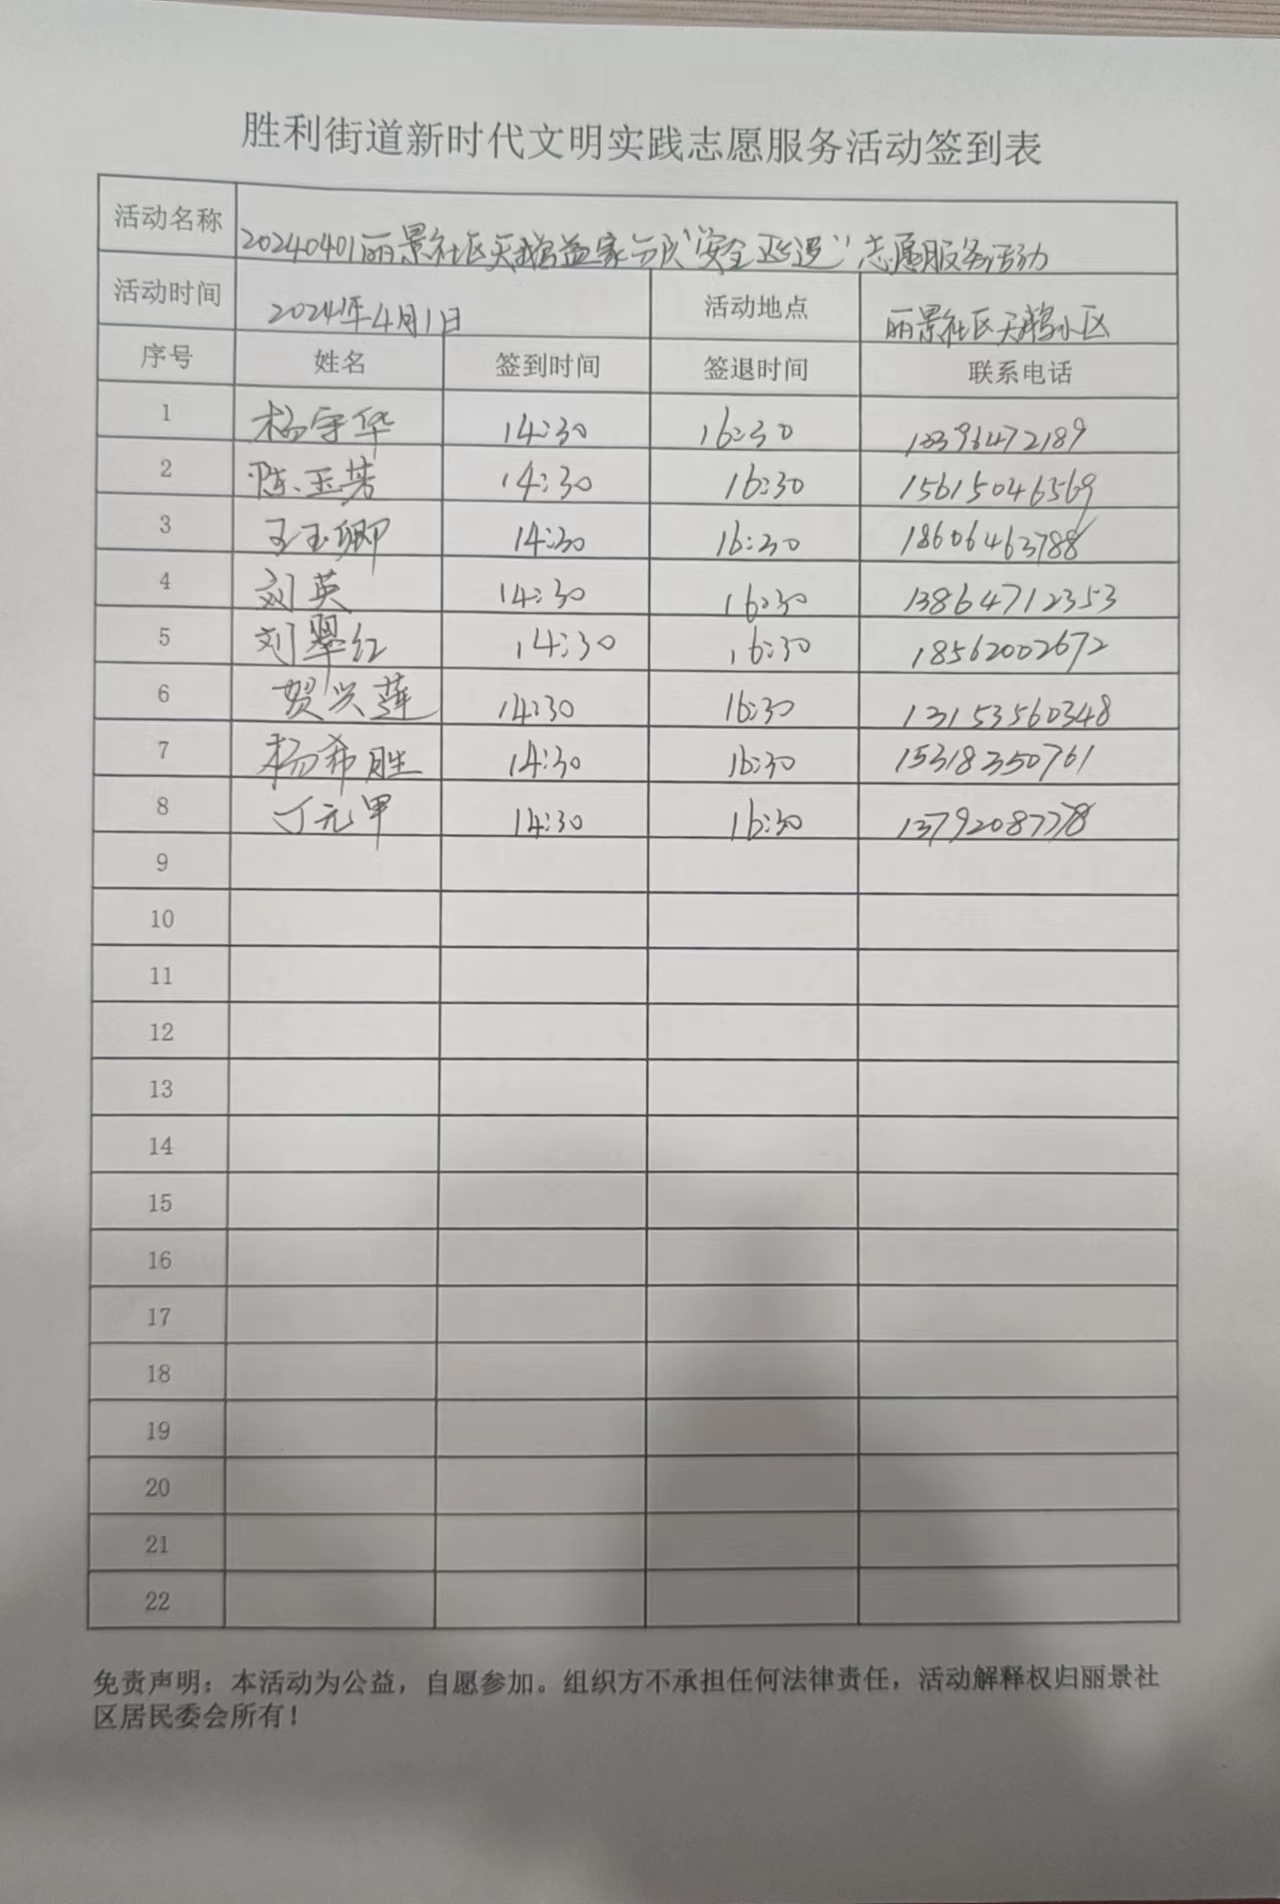 胜利街道新时代文明实践志愿服务活动签到表
活动名称 20240401丽景社区天鹅益家分队“安全巡逻”志愿服务活动
活动时间 2024年4月1日 活动地点 丽景社区天鹅小区
序号 姓名 签到时间 签退时间 联系电话
1 杨守华 14:30 16:30
2 陈玉芳 14:30 16:30 15615046569
3 王玉卿 14:30 16:30 18606463788
4 刘英 14:30 16:30 13864712353
5 刘翠红 14:30 16:30 18562002672
6 贺兴莲 14:30 16:30 13153560348
7 杨希胜 14:30 16:30 15318350761
8 丁元甲 14:30 16:30 13792087778
9
10
11
12
13
14
15
16
17
18
19
20
21
22
免责声明：本活动为公益，自愿参加。组织方不承担任何法律责任，活动解释权归丽景社
区居民委会所有！